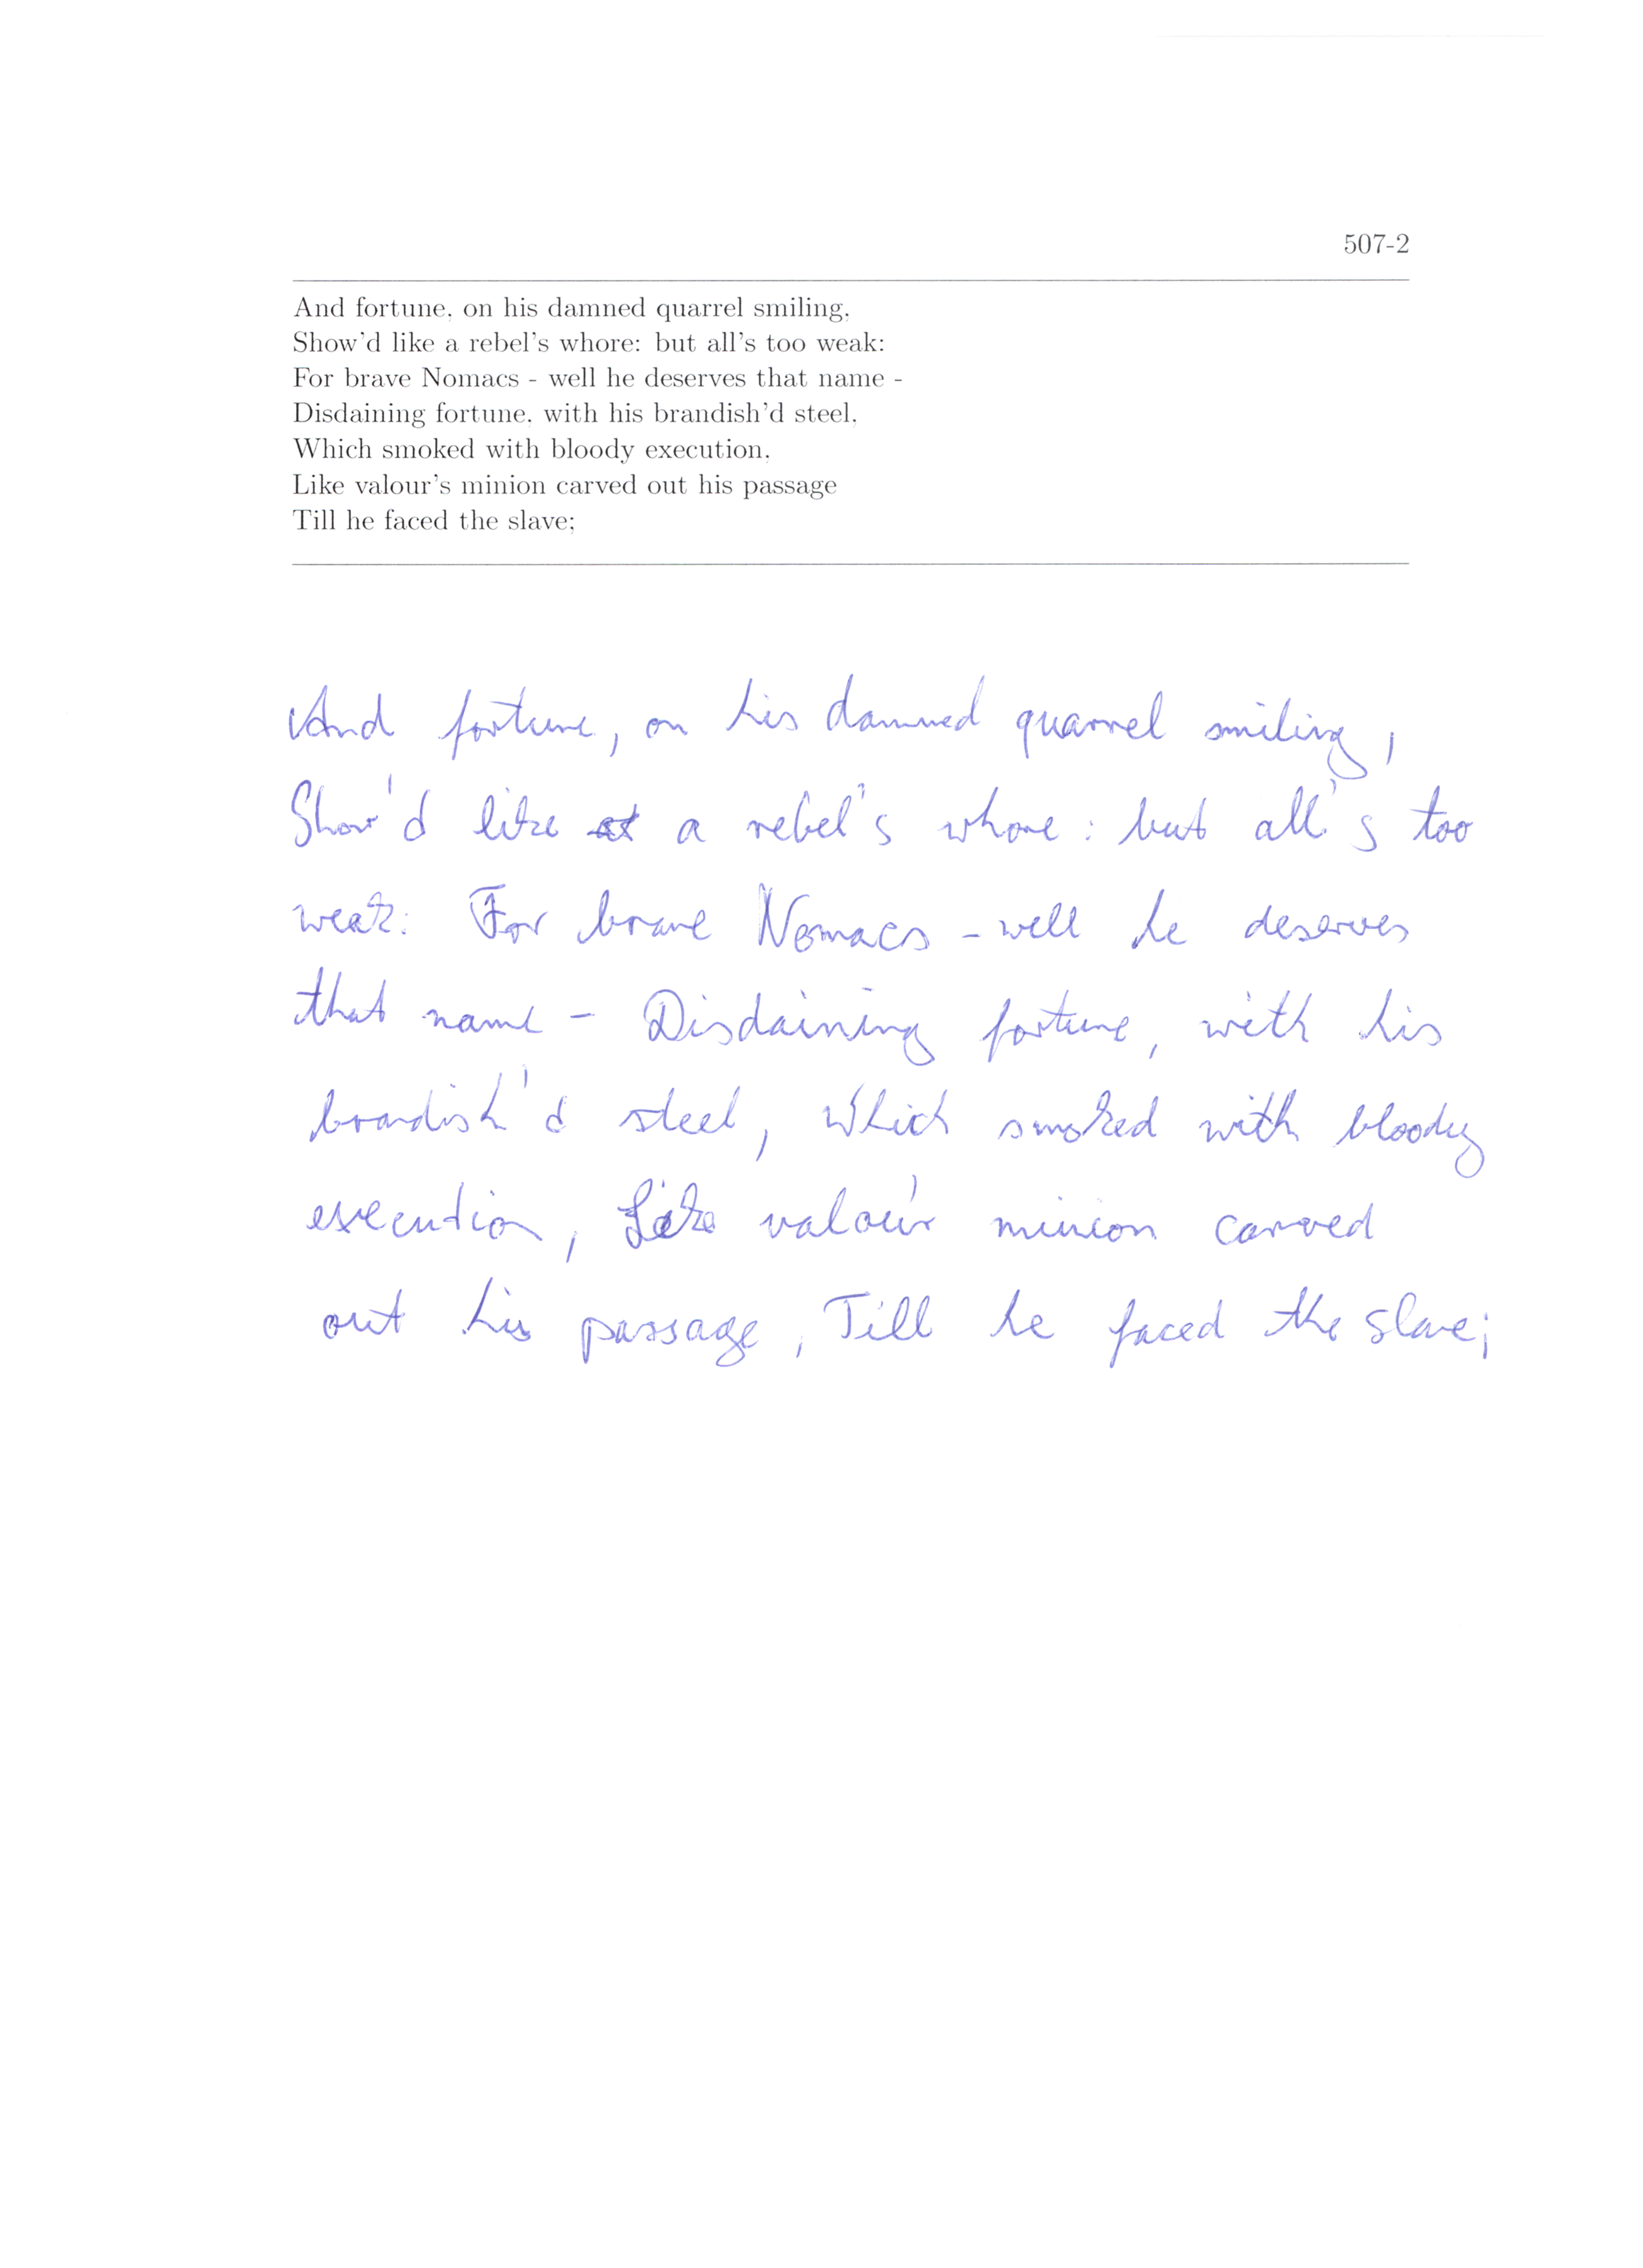 507-2
And fortune, on his damned quarrel smiling,
Show'd like a rebel's whore: but all's too weak:
For brave Nomacs - well he deserves that name -
Disdaining fortune, with his brandish'd steel,
Which smoked with bloody execution,
Like valour's minion carved out his passage
Till he faced the slave;
And fortune, on his damned quarrel smiling,
Show'd like a rebel's whore: but all's too
weak: For brave Nomacs - well he deserves
that name - Disdaining fortune, with his
brandish'd steel, Which smoked with bloody
execution, Like valou'r minion carved
out his passage, Till he faced the slave;